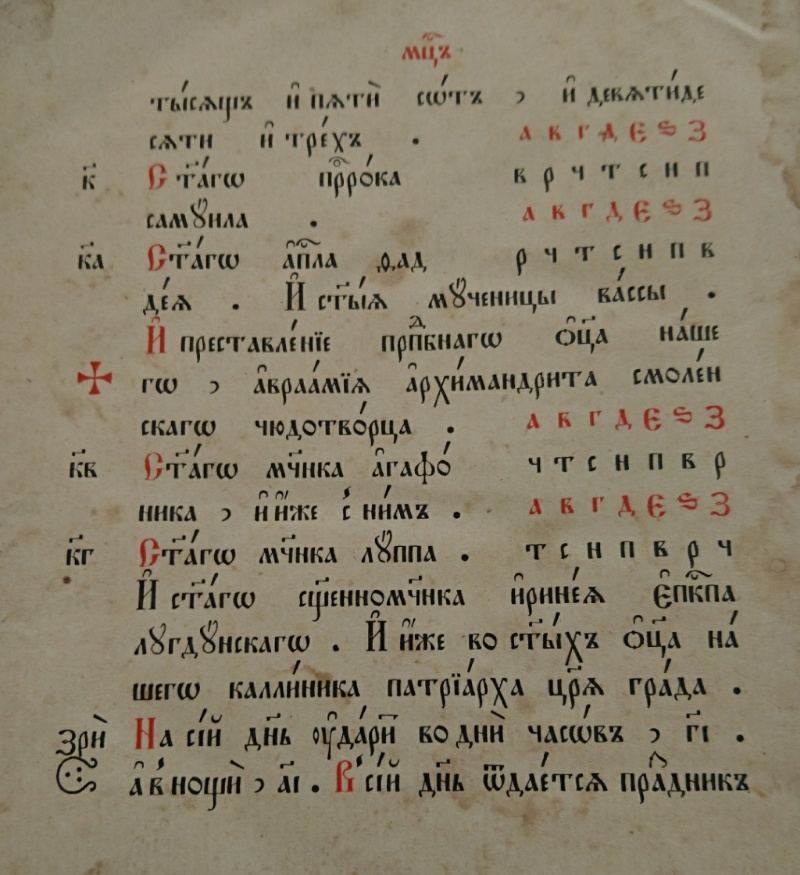 мцⷭ҇ъ
ты́сѧщъ и҆ пѧтѝ сѡ́тъ , и҆ девѧти́де
сѧти и҆ тре́хъ . А В Г Д Е Ѕ З
к҃ С т҃а́гѡ прⷪ҇ро́ка в р ч т с н п
самꙋила . А В Г Д Е Ѕ З
к҃а Ст҃а́гѡ а҆пⷭ҇ла ѳ,ад р ч т с н п в
де́ѧ . И҆ ст҃ы́ѧ мꙋ́ченицы ва́ссы .
И҆ преставле́нїе прпⷣбнагѡ ѻ҆ц҃а на́ше
гѡ , а҆враа́мїѧ а҆рхи́мандрита смоле́н
скагѡ чюдотво́рца . А В Г Д Е Ѕ З
к҃в Ст҃а́гѡ мч҃нка а҆гаѳо́ ч т с н п в р
ника , и҆ и҆́же с̾ ни́мъ . А В Г Д Е Ѕ З
к҃г Ст҃а́гѡ мч҃нка лꙋ́ппа . т с н п в р ч
И҆ ст҃а́гѡ сщ҃енномч҃нка и҆рине́ѧ є҆пкⷭ҇па
лꙋгдꙋ́нскагѡ . И҆ и҆́же во ст҃ы́хъ ѻ҆ц҃а на́
шегѡ калли́ника патрїа́рха цр҃ѧ гра́да .
Зрѝ На сі́й дн҃ь ᲂу҆да́ри҃ во днѝ часѡ́въ , г҃і .
а҆ в̾ нощѝ , а҃і . В̾ сі́й дн҃ь ѿдае́тсѧ пра́ⷥдникъ